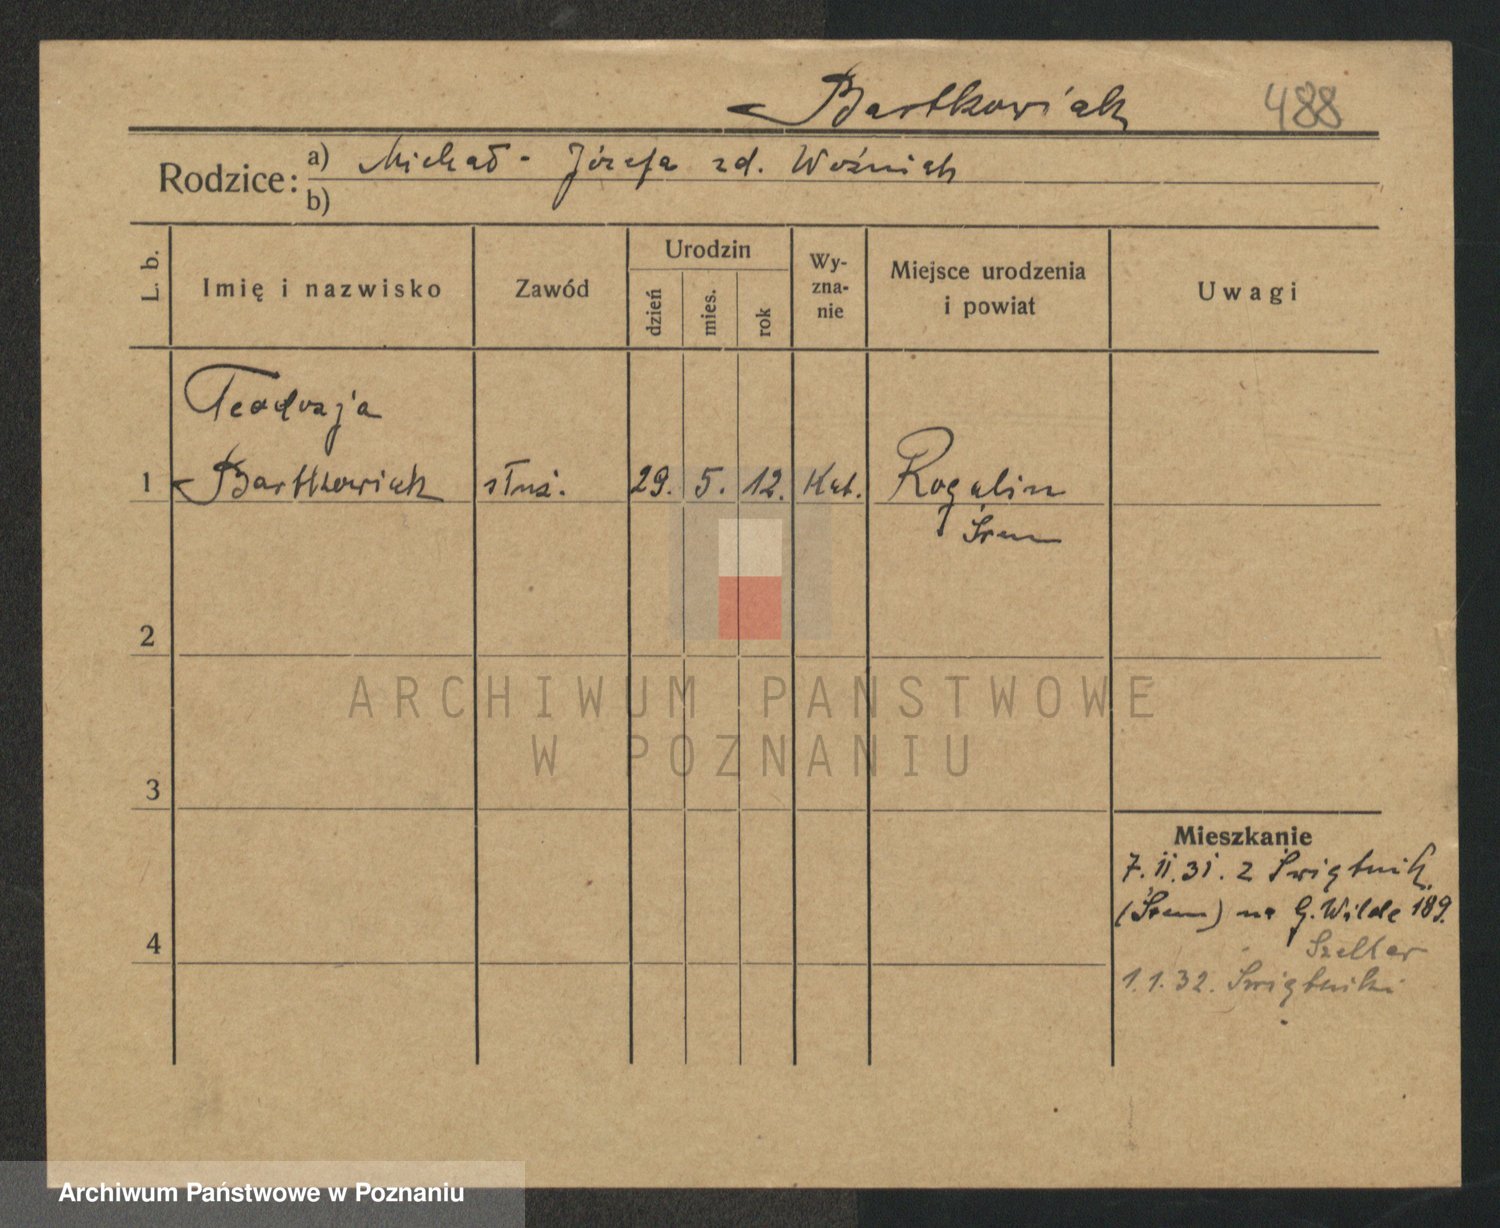 Bartkowiak 488
Rodzice: a) Michał - Józefa zd. Woźniak
b)
L. b.
Imię i nazwisko
Zawód
Urodzin
dzień
mies.
rok
Wy-
zna-
nie
Miejsce urodzenia
i powiat
Uwagi
Teodozja
1 Bartkowiak służ. 29. 5. 12. Kat. Rogalin
Śrem
2
ARCHIWUM PAŃSTWOWE
W POZNANIU
3
Mieszkanie
7. II. 31. z Świątnik
(Śrem) na G. Wilde 189.
4
Szelker
1.1.32. Świątniki
Archiwum Państwowe w Poznaniu